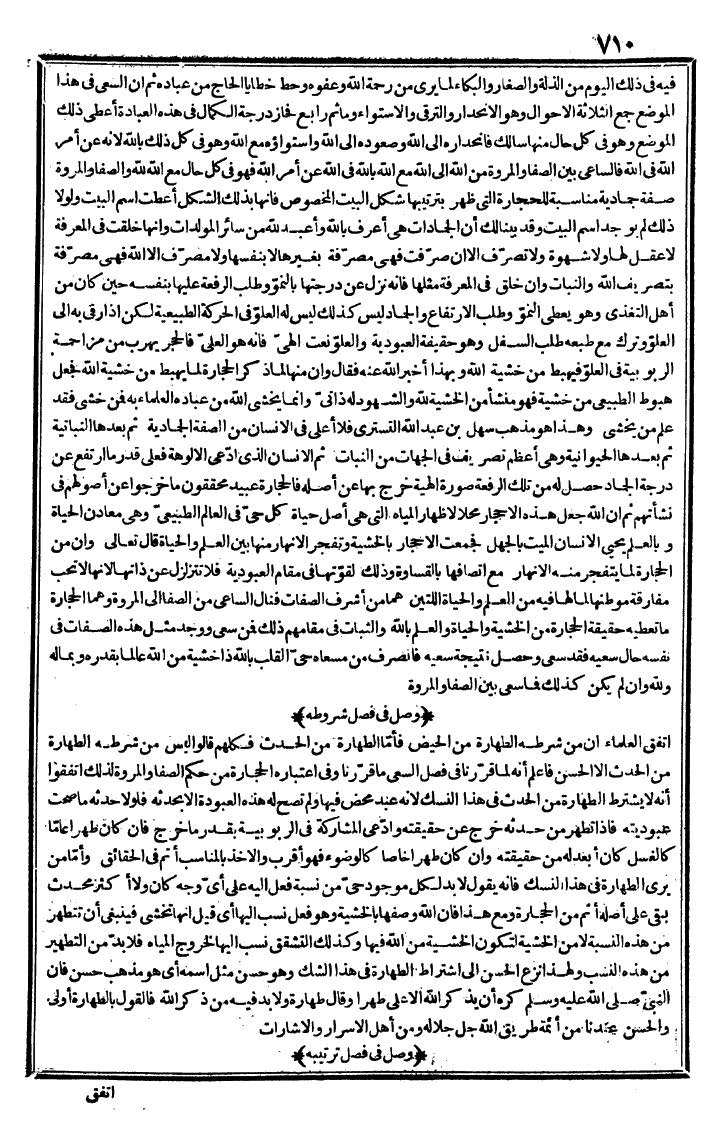 ٧١٠
فيه فى ذلك اليوم من الذلة والصغار والبكاء لما يرى من رحمة الله وعفوه وحط خطايا الحاج من عباده ثم ان السعى فى هذا
الموضع جمع الثلاثة الاحوال وهو الانحدار والترقى والاستواء وما ثم رابع فحاز درجة الكمال فى هذه العبادة أعطى ذلك
الموضع وهو فى كل حال منها سالك فانحداره الى الله وصعوده الى الله واستواؤه مع الله وهو فى كل ذلك بالله لانه عن أمر
الله فى الله فالساعى بين الصفا والمروة من الله الى الله مع الله بالله فى الله عن أمر الله فهو فى كل حال مع الله لله والصفا والمروة
صفة جمادية مناسبة للحجارة التى ظهر بترتيبها شكل البيت المخصوص فانها بذلك الشكل أعطت اسم البيت ولولا
ذلك لم يوجد اسم البيت وقد بينا لك أن الجمادات هى أعرف بالله وأعبد لله من سائر المولدات وانها خلقت فى المعرفة
لا عقل لها ولا شهوة ولا تصرف الا ان صرفت فهى مصرفة بغيرها لا بنفسها ولا مصرف الا الله فهى مصرفة
بتصريف الله والنبات وان خلق فى المعرفة مثلها فانه نزل عن درجتها بالنمو وطلب الرفعة عليها بنفسه حين كان من
أهل التغذى وهو يعطى النمو وطلب الارتفاع والجماد ليس كذلك ليس له العلو فى الحركة الطبيعية لكن اذا رقى به الى
العلو وترك مع طبعه طلب السفل وهو حقيقة العبودية والعلو نعت الهىّ فانه هو العلىّ فالحجر يهرب من مزاحمة
الربوبية فى العلو فيهبط من خشية الله وبهذا أخبر الله عنه فقال وان منها لما ذكر الحجارة لما يهبط من خشية الله فجعل
هبوط الطبيعى من خشية فهو منشأ من الخشية لله والشهود له ذاتىّ وانما يخشى الله من عباده العلماء به فن خشى فقد
علم من يخشى وهذا هو مذهب سهل بن عبد الله التسترى فلا أعلى فى الانسان من الصفة الجمادية ثم بعدها النباتية
ثم بعدها الحيوانية وهى أعظم تصريف فى الجهات من النبات ثم الانسان الذى ادّعى الالوهة فعلى قدر ما ارتفع عن
درجة الجماد حصل له من تلك الرفعة صورة الهية خرج بها عن أصله فالحجارة عبيد محققون ما خرجوا عن أصولهم فى
نشأتهم ثم ان الله جعل هذه الاحجار محلا لاظهار المياه التى هى أصل حياة كل حىّ فى العالم الطبيعىّ وهى معادن الحياة
و بالعلم يحيى الانسان الميت بالجهل فجمعت الاحجار بالخشية وتفجر الانهار منها بين العلم والحياة قال تعالى وان من
الحجارة لما يتفجر منه الانهار مع اتصافها بالقساوة وذلك لقوتها فى مقام العبودية فلا تتزلزل عن ذاتها لانها لا تحب
مفارقة موطنها لما لها فيه من العلم والحياة اللتين هما من أشرف الصفات فنال الساعى من الصفا الى المروة وهما الحجارة
ما تعطيه حقيقة الحجارة من الخشية والحياة والعلم بالله والثبات فى مقامهم ذلك فن سعى ووجد مثل هذه الصفات فى
نفسه حال سعيه فقد سعى وحصل نتيجة سعيه فانصرف من مسعاه حىّ القلب بالله ذا خشية من الله عالما بقدره وبماله
ولله وان لم يكن كذلك فما سعى بين الصفا والمروة
﴿وصل فى فصل شروطه﴾
اتفق العلماء ان من شرطه الطهارة من الحيض فأمّا الطهارة من الحدث فكلهم قالوا ليس من شرطه الطهارة
من الحدث الا الحسن فاعلم أنه لما قررنا فى فصل السعى ما قررنا وفى اعتباره الحجارة من حكم الصفا والمروة لذلك اتفقوا
أنه لا يشترط الطهارة من الحدث فى هذا النسك لانه عبد محض فيها ولم تصح له هذه العبودة الا بحدثه فلولا حدثه ما صحت
عبوديته فاذا تطهر من حدثه خرج عن حقيقته وادّعى المشاركة فى الربوبية بقدر ما خرج فان كان طهرا عامّا
كالغسل كان أبعد له من حقيقته وان كان طهرا خاصا كالوضوء فهو أقرب والاخذ بالمناسب أتم فى الحقائق وأمّا من
يرى الطهارة فى هذا النسك فانه يقول لا بد لكل موجود حىّ من نسبة فعل اليه على أىّ وجه كان ولا أكثر محدث
بقى على أصله أتم من الحجارة ومع هذا فان الله وصفها بالخشية وهو فعل نسب اليها أى قيل انها تخشى فينبغى أن تتطهر
من هذه النسبة لا من الخشية لتكون الخشية من الله فيها وكذلك التشقق نسب اليها لخروج المياه فلا بدّ من التطهير
من هذه النسب ولهذا نزع الحسن الى اشتراط الطهارة فى هذا النسك وهو حسن مثل اسمه أى هو مذهب حسن فان
النبىّ صلى الله عليه وسلم كره أن يذكر الله الا على طهر أو قال طهارة ولا بد فيه من ذكر الله فالقول بالطهارة أولى
والحسن عندنا من أئمة طريق الله جل جلاله ومن أهل الاسرار والاشارات
﴿وصل فى فصل ترتيبه﴾
اتفق